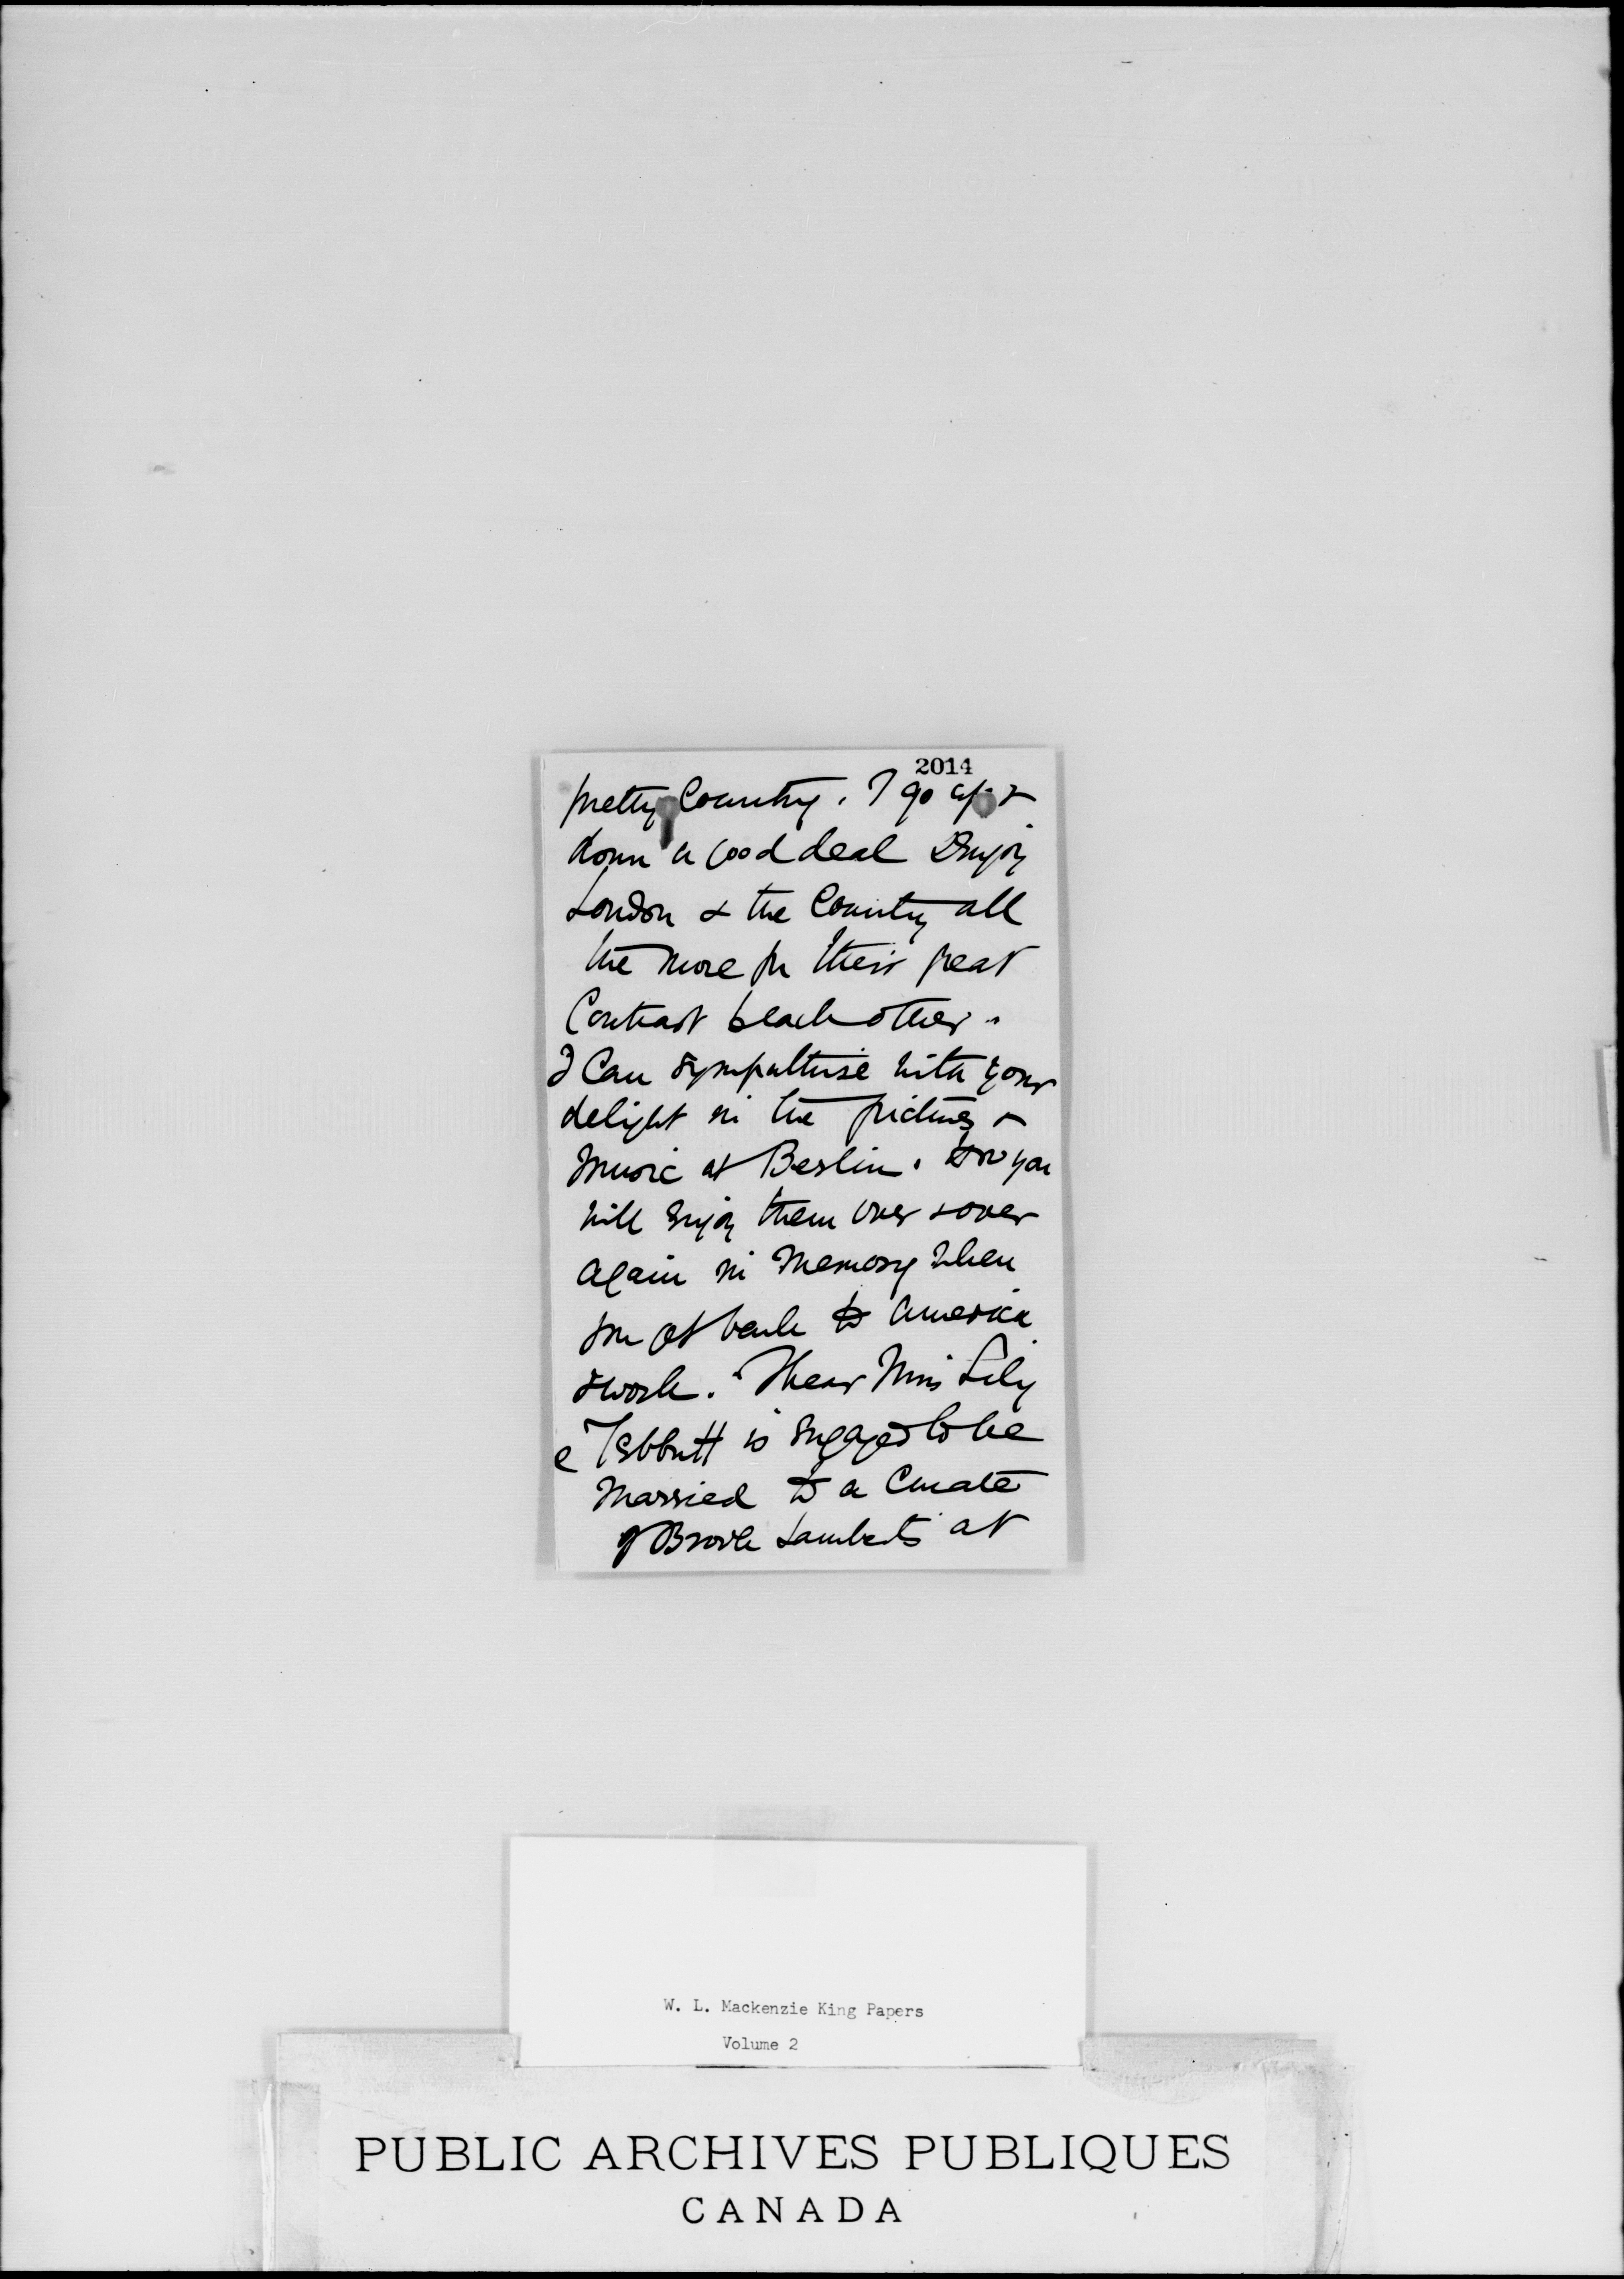 2014
pretty Country. I go up &
down a good deal & enjoy
London & the Country all
the more for their great
Contrast to each other.
I Can sympathise with your
delight in the pictures &
Music at Berlin. & you
will enjoy them over & over
again in Memory when
you get back to America
& work. I hear Miss Lily
Tebbutt is engaged to be
Married to a Curate
of Brooke Lambert's at
W. L. Mackenzie King Papers
Volume 2
PUBLIC ARCHIVES PUBLIQUES
CANADA